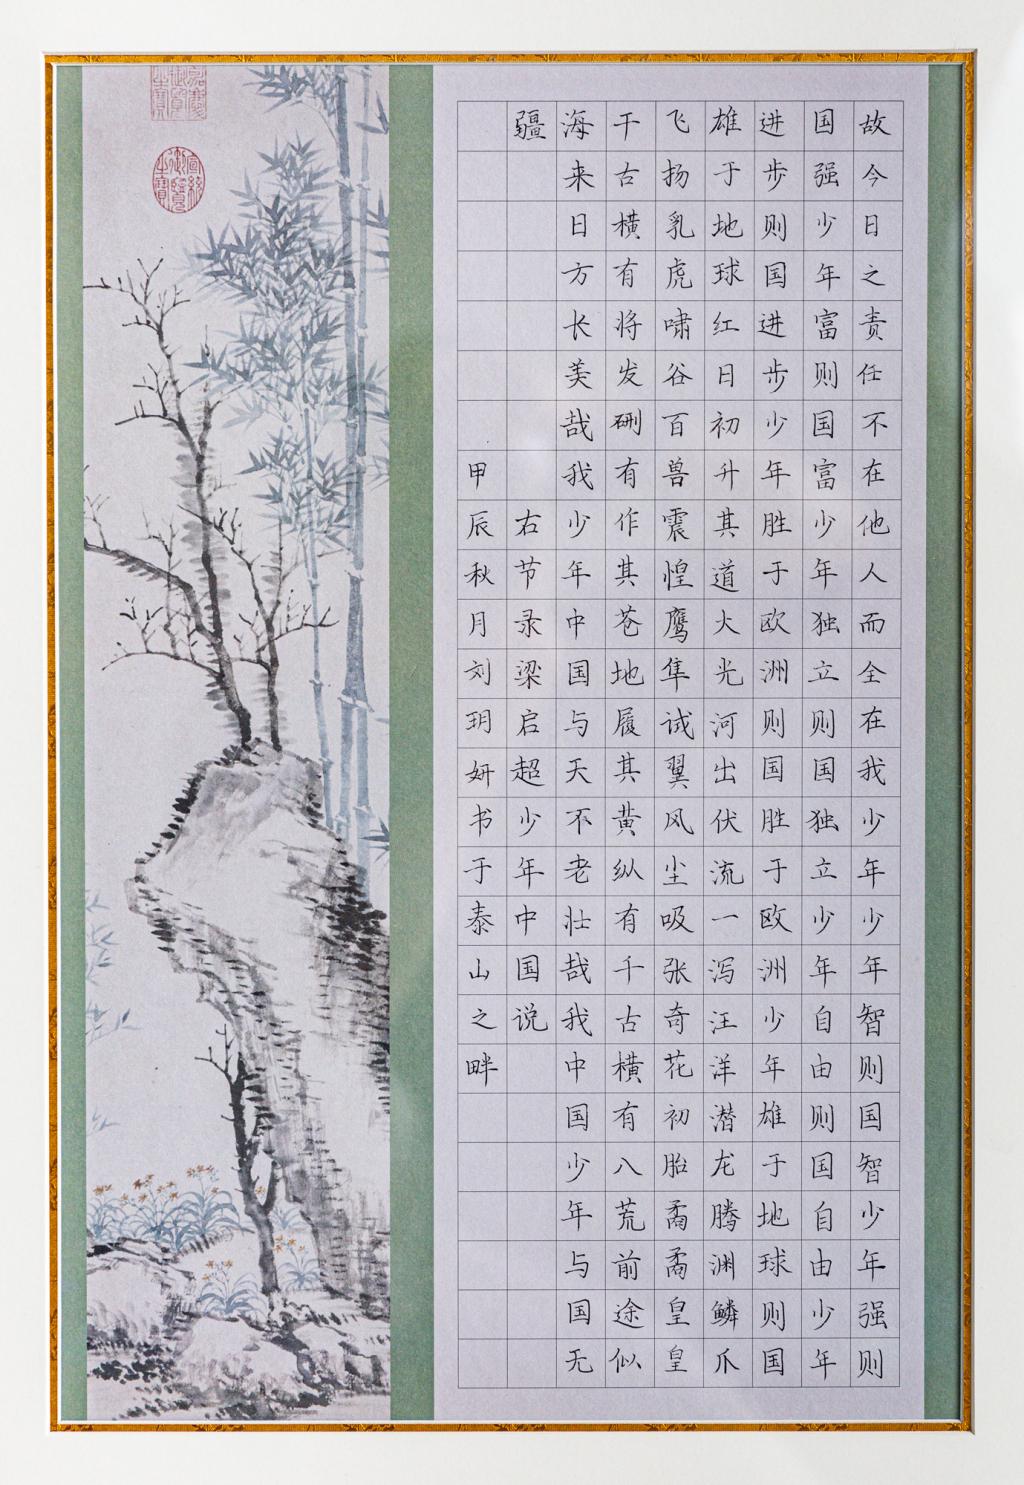 故今日之责任不在他人而全在我少年少年智则国智少年强则
国强少年富则国富少年独立则国独立少年自由则国自由少年
进步则国进步少年胜于欧洲则国胜于欧洲少年雄于地球则国
雄于地球红日初升其道大光河出伏流一泻汪洋潜龙腾渊鳞爪
飞扬乳虎啸谷百兽震惶鹰隼试翼风尘吸张奇花初胎矞矞皇皇
干古横有将发硎有作其苍地履其黄纵有千古横有八荒前途似
海来日方长美哉我少年中国与天不老壮哉我中国少年与国无
疆 右节录梁启超少年中国说
甲辰秋月刘玥妍书于泰山之畔
嘉慶御覽之寶
宣統御覽之寶